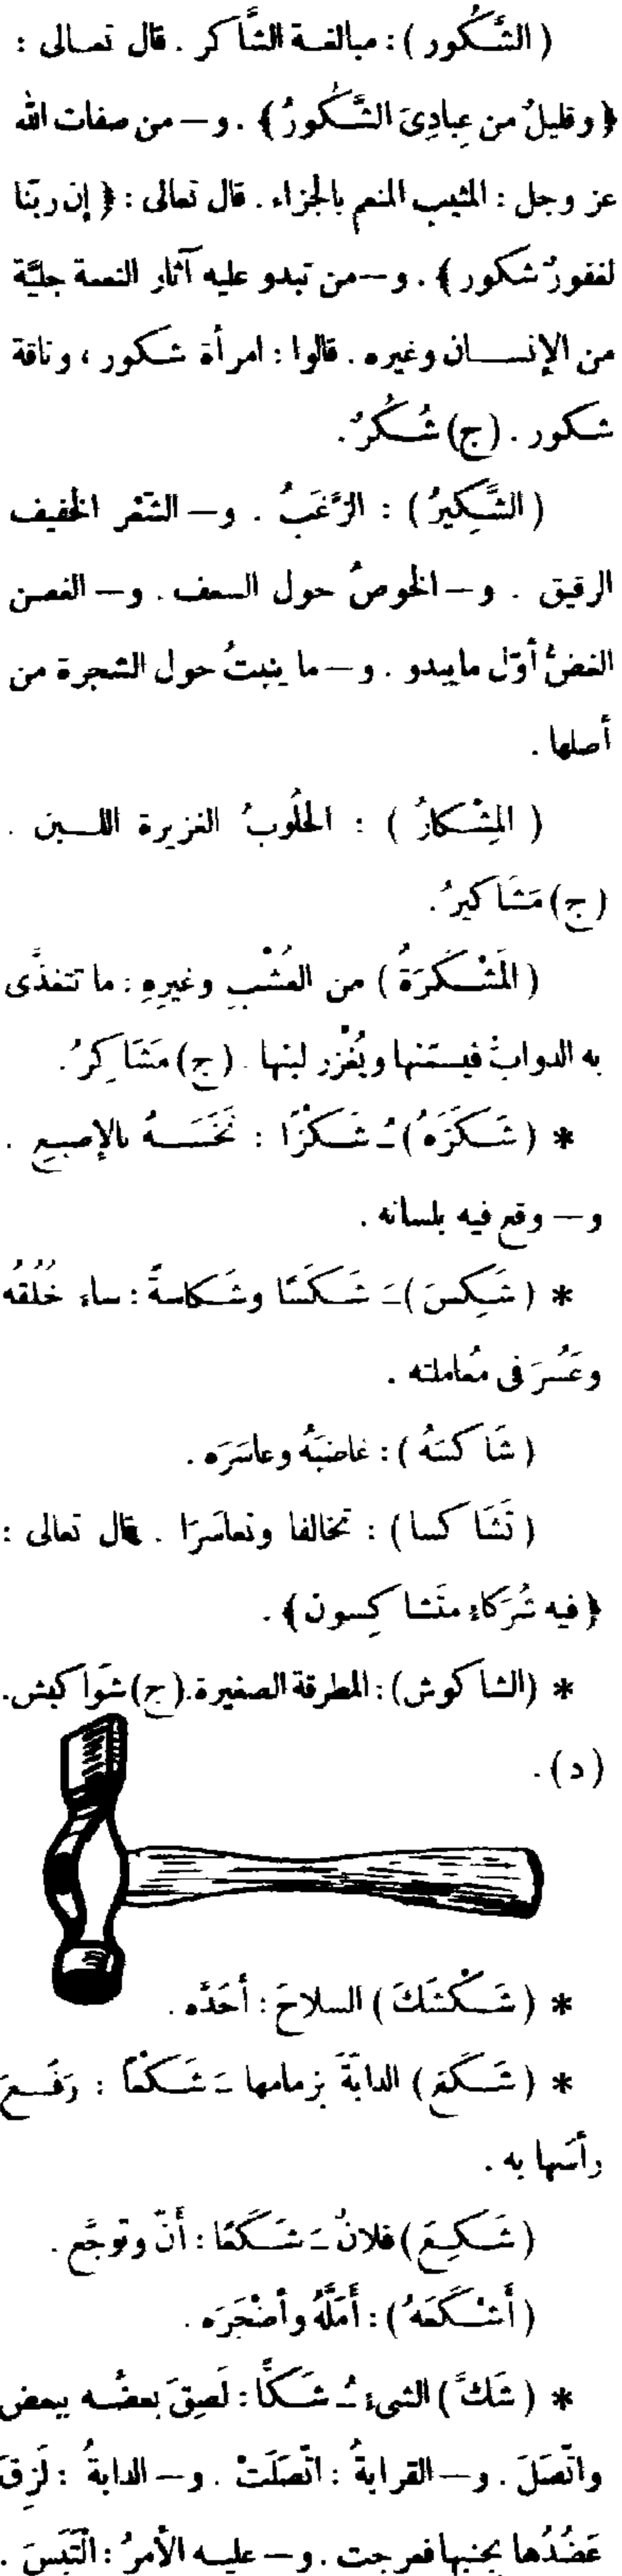 ( الشَّكُور ) : مبالغة الشَّاكر . قال تعالى :
﴿ وقليلٌ من عِبادِىَ الشَّكُورُ ﴾ . و — من صفات الله
عز وجل : المثيب المنعم بالجزاء . قال تعالى : ﴿ إن ربّنا
لغفورٌ شكور ﴾ . و — من تبدو عليه آثار النعمة جليَّة
من الإنسان وغيره . قالوا : امرأة شكور ، وناقة
شكور . (ج) شُكُرٌ .
( الشَّكِيرُ ) : الزَّغَبُ . و — الشّعْر الخفيف
الرقيق . و — الخوصُ حول السعف . و — الغصن
الغضُّ أوّل مايبدو . و — ما ينبتُ حول الشجرة من
أصلها .
( المِشْكارُ ) : الحَلُوبُ الغزيرة اللبن .
(ج) مَشَاكيرُ .
( المَشْكَرَةُ ) من العُشْبِ وغيرِهِ : ما تتغذَّى
به الدوابُّ فيسمّنها ويُغْزر لبنها . (ج) مَشَاكِرُ .
* ( شَكَزَهُ ) ـُ شَكْزًا : نَخَسَهُ بالإصبع .
و — وقع فيه بلسانه .
* ( شَكِسَ ) ـَ شَكَسًا وشَكاسةً : ساء خُلُقُه
وعَسُرَ فى مُعاملته .
( شَاكَسَهُ ) : غاضبَهُ وعاسَرَه .
( تَشَاكسا ) : تخالفا وتعاسَرَا . قال تعالى :
﴿ فيه شُرَكاءُ متَشاكِسون ﴾ .
* (الشاكوش) : المطرقة الصغيرة. (ج) شَوَاكيش.
(د) .
* ( شَكْشَكَ ) السلاحَ : أَحَدَّه .
* ( شَكَعَ ) الدابَّةَ بزمامها ـَ شَكْعًا : رَفَعَ
رأسَها به .
( شَكِعَ ) فلانٌ ـَ شَكَعًا : أَنّ وتوجَّع .
( أَشْكَعَهُ ) : أَمَلَّهُ وأَضْجَرَه .
* ( شَكَّ ) الشىءُ ـُ شَكًّا : لَصِقَ بعضُه ببعض
واتَّصَلَ . و — القرابةُ : اتَّصَلَتْ . و — الدابةُ : لَزِقَ
عَضُدُها بجنبها فعرجت . و — عليه الأمرُ : الْتَبَسَ .